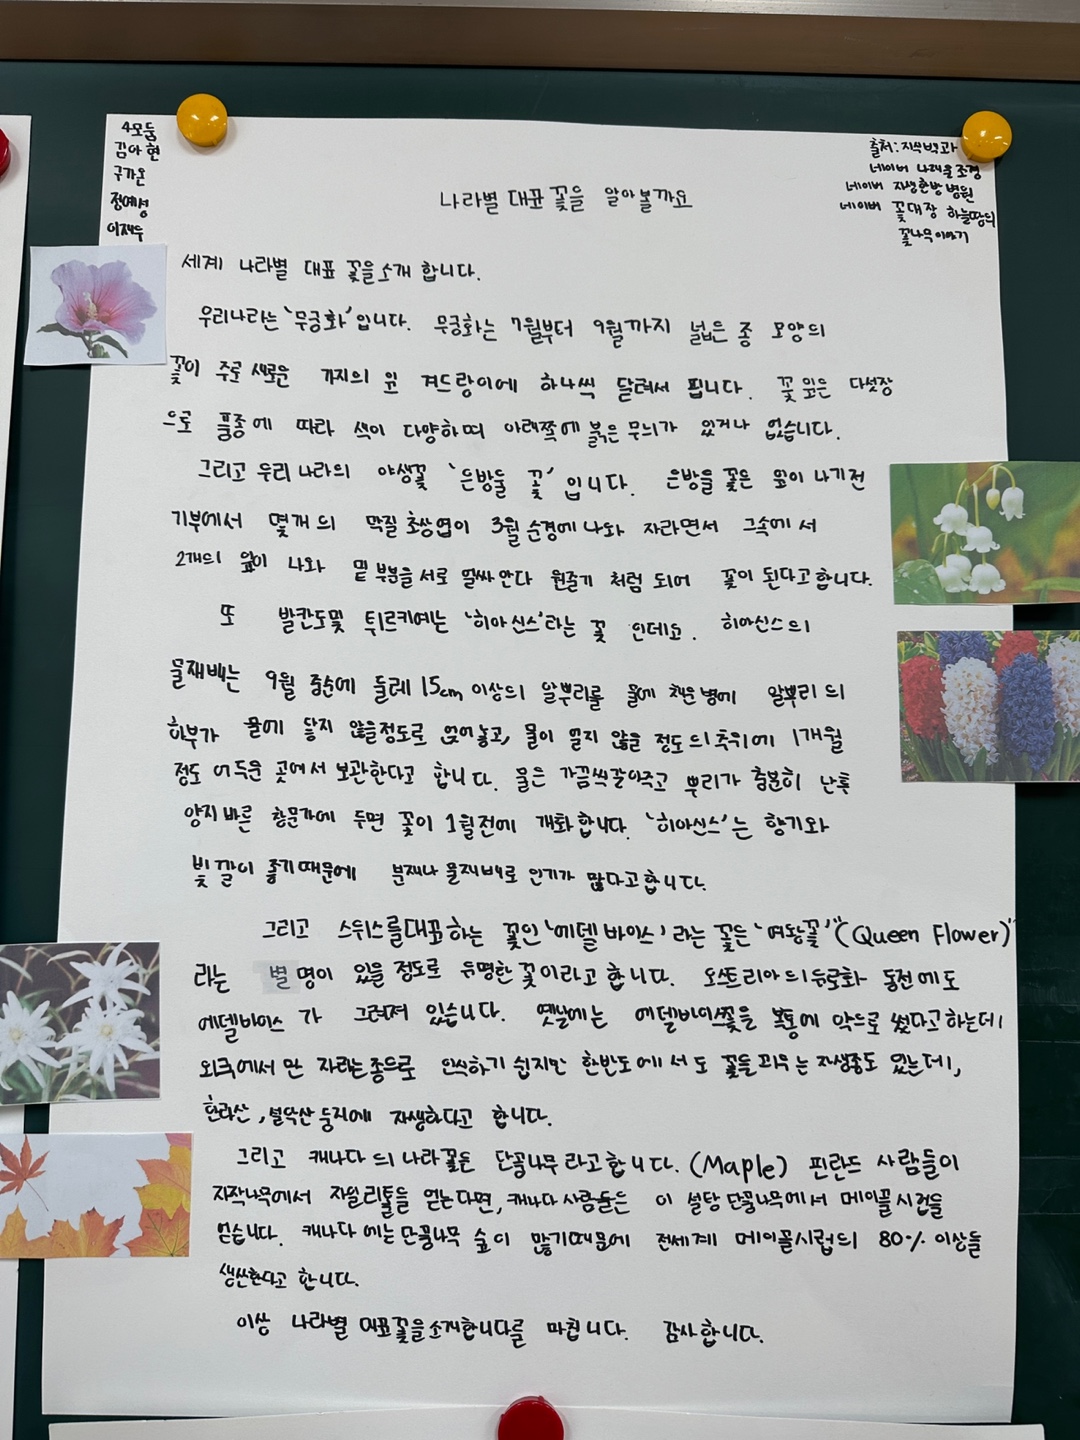 4모둠
김아현
구가온
정예성
이재우
출처: 지식백과
네이버 나래울 조경
네이버 자생한방병원
네이버 꽃대장 하늘땅의
꽃나무이야기
나라별 대표 꽃을 알아볼까요
세계 나라별 대표 꽃을 소개 합니다.
우리나라는 '무궁화'입니다. 무궁화는 7월부터 9월까지 넓은 종 모양의
꽃이 주로 새로운 가지의 잎 겨드랑이에 하나씩 달려서 핍니다. 꽃 잎은 다섯장
으로 품종에 따라 색이 다양하며 아래쪽에 붉은 무늬가 있거나 없습니다.
그리고 우리 나라의 야생꽃 '은방울 꽃' 입니다. 은방울 꽃은 잎이 나기전
기부에서 몇개의 막질 초상엽이 3월 순경에 나와 자라면서 그속에서
2개의 잎이 나와 밑 부분을 서로 얼싸안다 원줄기 처럼 되어 꽃이 된다고합니다.
또 발칸도및 튀르키예는 '히아신스'라는 꽃 인데요. 히아신스의
물재배는 9월 중순에 둘레 15cm 이상의 알뿌리를 물에 채운 병에 알뿌리의
하부가 물에 닿지 않을정도로 얹어놓고, 물이 얼지 않을 정도의 추위에 1개월
정도 어두운 곳에서 보관한다고 합니다. 물은 가끔씩갈아주고 뿌리가 충분히 난후
양지 바른 창문가에 두면 꽃이 1월전에 개화합니다. '히아신스'는 향기와
빛깔이 좋기때문에 분재나 물재배로 인기가 많다고합니다.
그리고 스위스를대표하는 꽃인 '에델바이스'라는 꽃은 '여왕꽃'"(Queen Flower)"
라는 별명이 있을 정도로 유명한 꽃이라고 합니다. 오스트리아의 유로화 동전에도
에델바이스가 그려져 있습니다. 옛날에는 에델바이스꽃을 복통에 약으로 썼다고하는데,
외국에서 만 자라는종으로 인식하기 쉽지만 한반도에서도 꽃을 피우는 자생종도 있는데,
한라산, 설악산 등지에 자생하다고 합니다.
그리고 캐나다의 나라꽃은 단풍나무라고합니다. (Maple) 핀란드 사람들이
자작나무에서 자일리톨을 얻는다면, 캐나다 사람들은 이 설탕 단풍나무에서 메이플시럽을
얻습니다. 캐나다에는 단풍나무 숲이 많기때문에 전세계 메이플시럽의 80% 이상을
생산한다고 합니다.
이상 나라별 대표꽃을소개합니다를 마칩니다. 감사합니다.